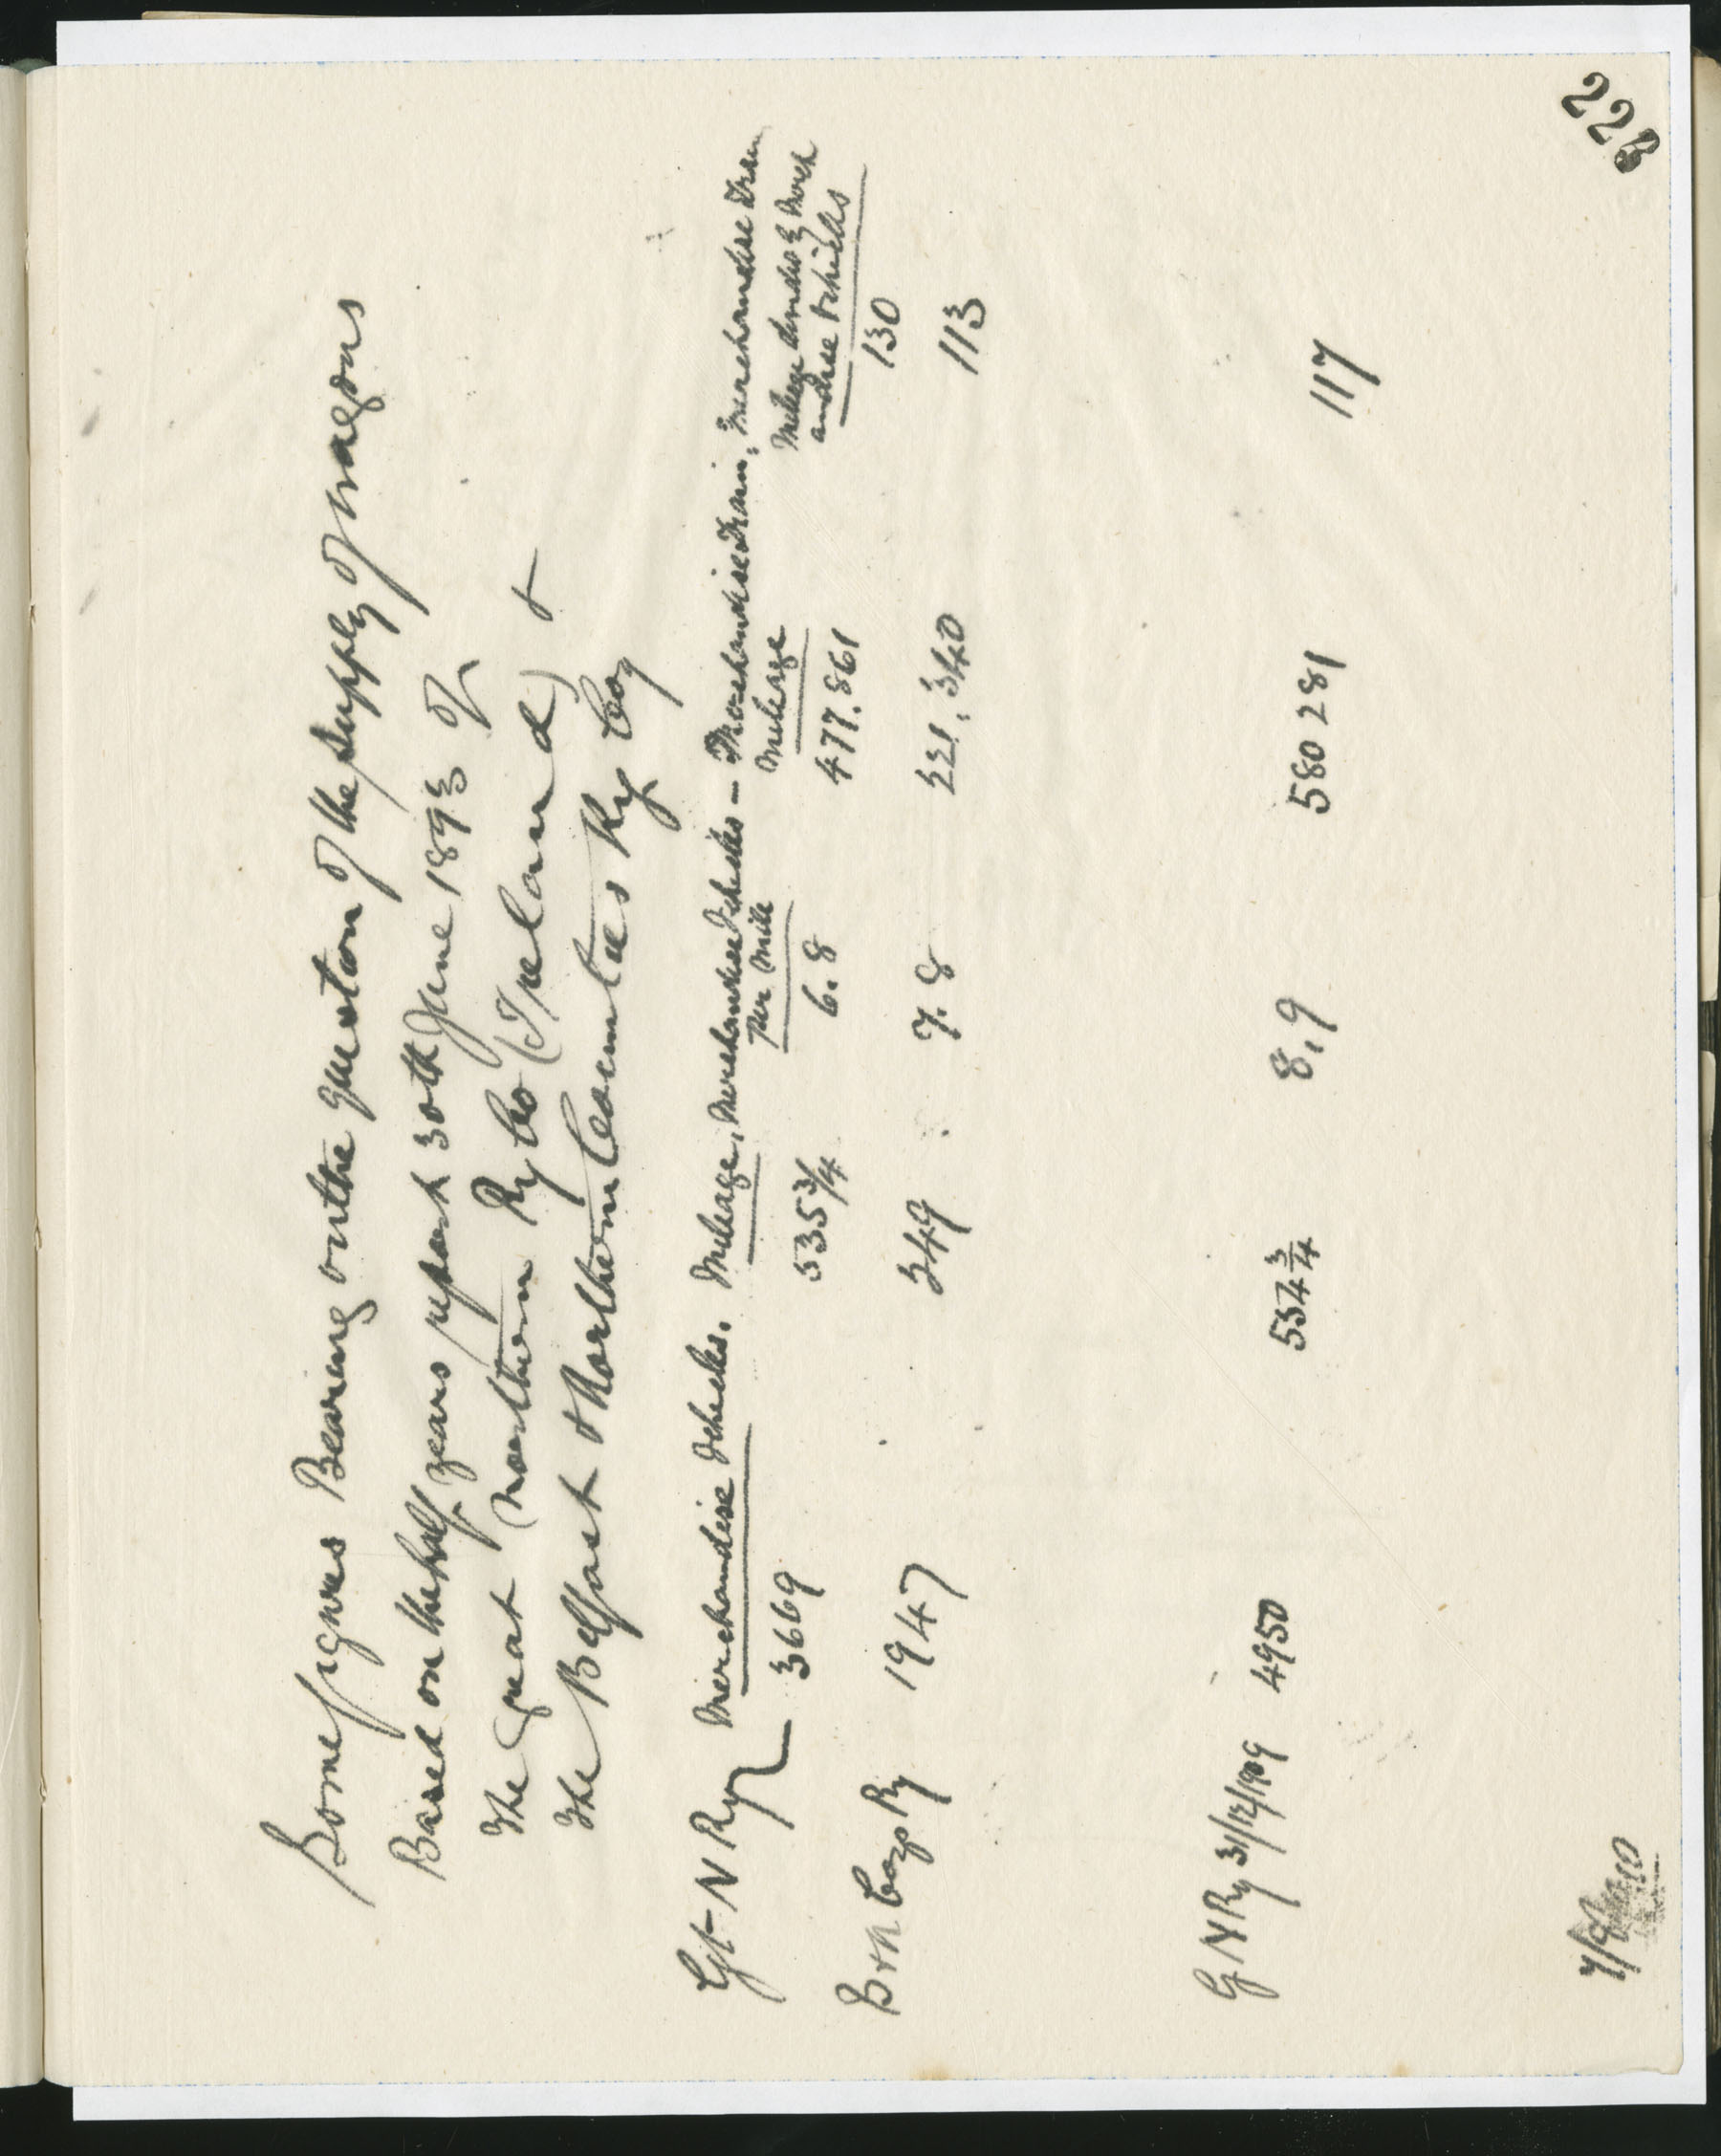 Some figures Bearing on the question of the supply of wagons
Based on the half years report 30th June 1893 of
The great (northern Ry Co (Ireland) &
The Belfast & Northern Counties Ry Coy
Gt N Ry Merchandise Vehicles. Mileage, Merchandise Vehicles – Merchandise Train, Merchandise Train
Per Mile Mileage Mileage divided by Merch
andise Vehicles
3669 535 3/4 6.8 477.861 130
B & N Coys Ry 1947 249 7.8 221,340 113
G N Ry 31/12/1909 4950 554 3/4 8,9 580 281 117
223